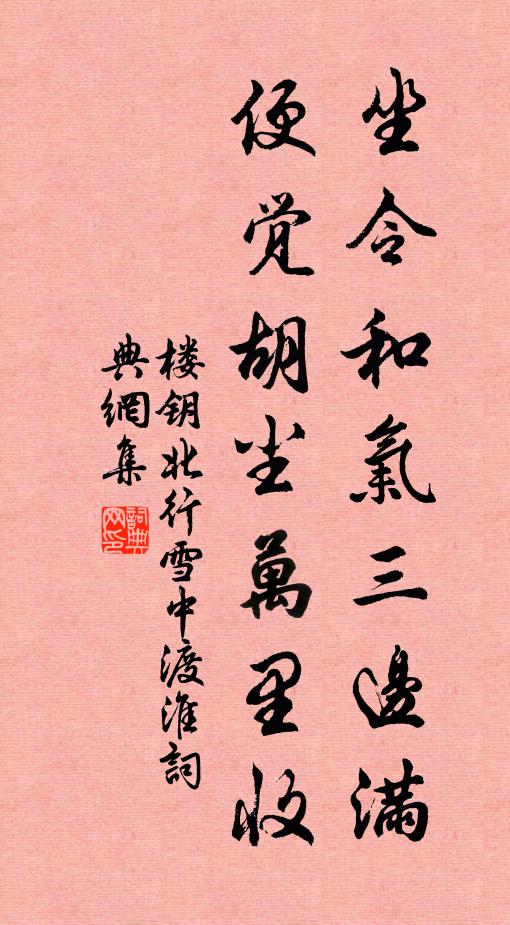 坐令和氣三邊满
便觉胡尘萬里收
楼钥北行雪中渡淮詞
典網集
詞典
网印